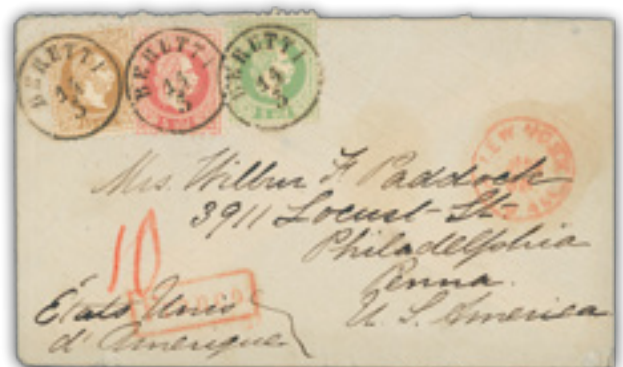 BERETTI 14/5
BERETTI 14/5
BERETTI 14/5
NEW YORK
Mrs. Wilbur F. Paddock
3911 Locust St
Philadelphia
Penna.
U. S. America
10
États Unis
d'Amerique